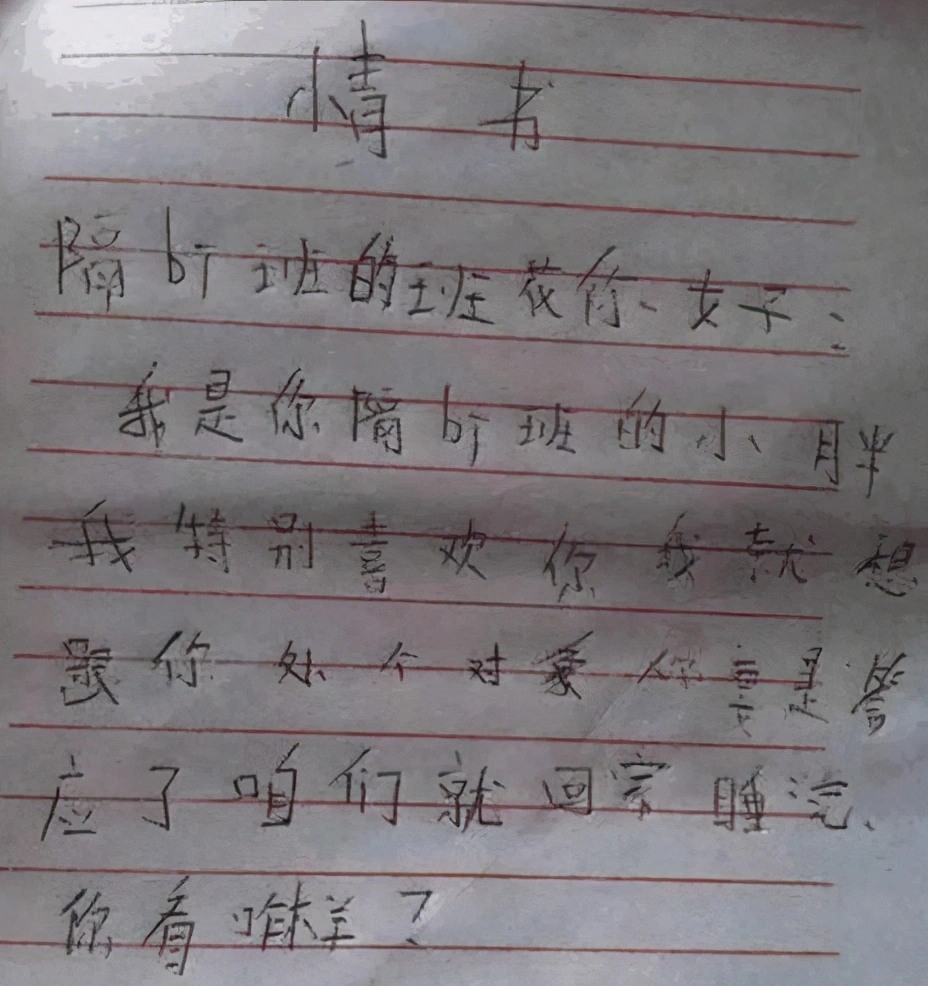 情 书
隔bi班的班花你、女子:
我是你隔bi班的小、月半
我特别喜欢你我就想
跟你处个对爱你要是答
应了咱们就回家睡
你看咱样?